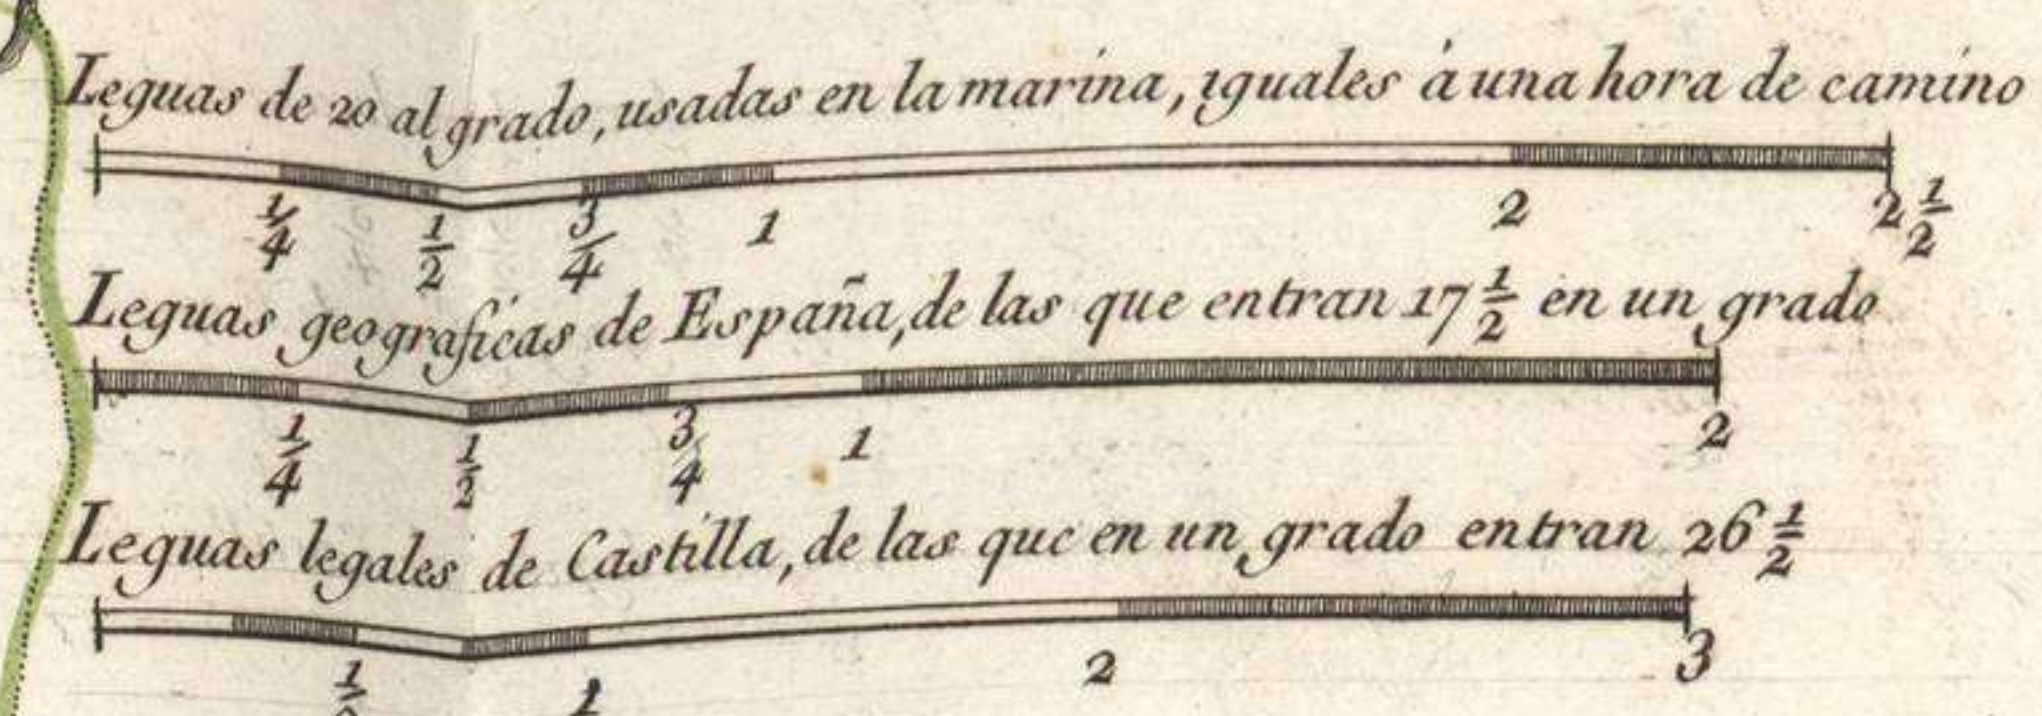 Leguas de 20 al grado, usadas en la marina, iguales á una hora de camino
1/4 1/2 3/4 1 2 2 1/2
Leguas geograficas de España, de las que entran 17 1/2 en un grado
1/4 1/2 3/4 1 2
Leguas legales de Castilla, de las que en un grado entran 26 1/2
1 2 3